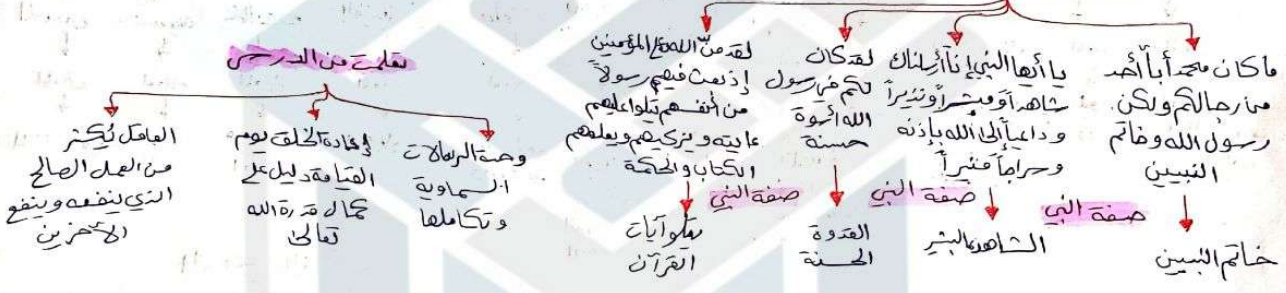 ما كان محمد أبا أحد
من رجالكم ولكن
رسول الله وخاتم
النبيين
صفة النبي
خاتم النبيين
يا أيها النبي إنا أرسلناك
شاهداً ومبشراً ونذيراً
وداعياً إلى الله بإذنه
وسراجاً منيراً
صفة النبي
الشاهد المبشر
لقد كان
لكم في رسول
الله أسوة
حسنة
صفة النبي
القدوة
الحسنة
لقد منّ الله على المؤمنين
إذ بعث فيهم رسولاً
من أنفسهم يتلوا عليهم
ءايته ويزكيهم ويعلمهم
الكتاب والحكمة
يتلو آيات
القرآن
تعلمت من الدرس
وحدة الرسالات
السماوية
وتكاملها
إعادة الخلق يوم
القيامة دليل على
كمال قدرة الله
تعالى
العاقل يُكثر
من العمل الصالح
الذي ينفعه وينفع
الآخرين